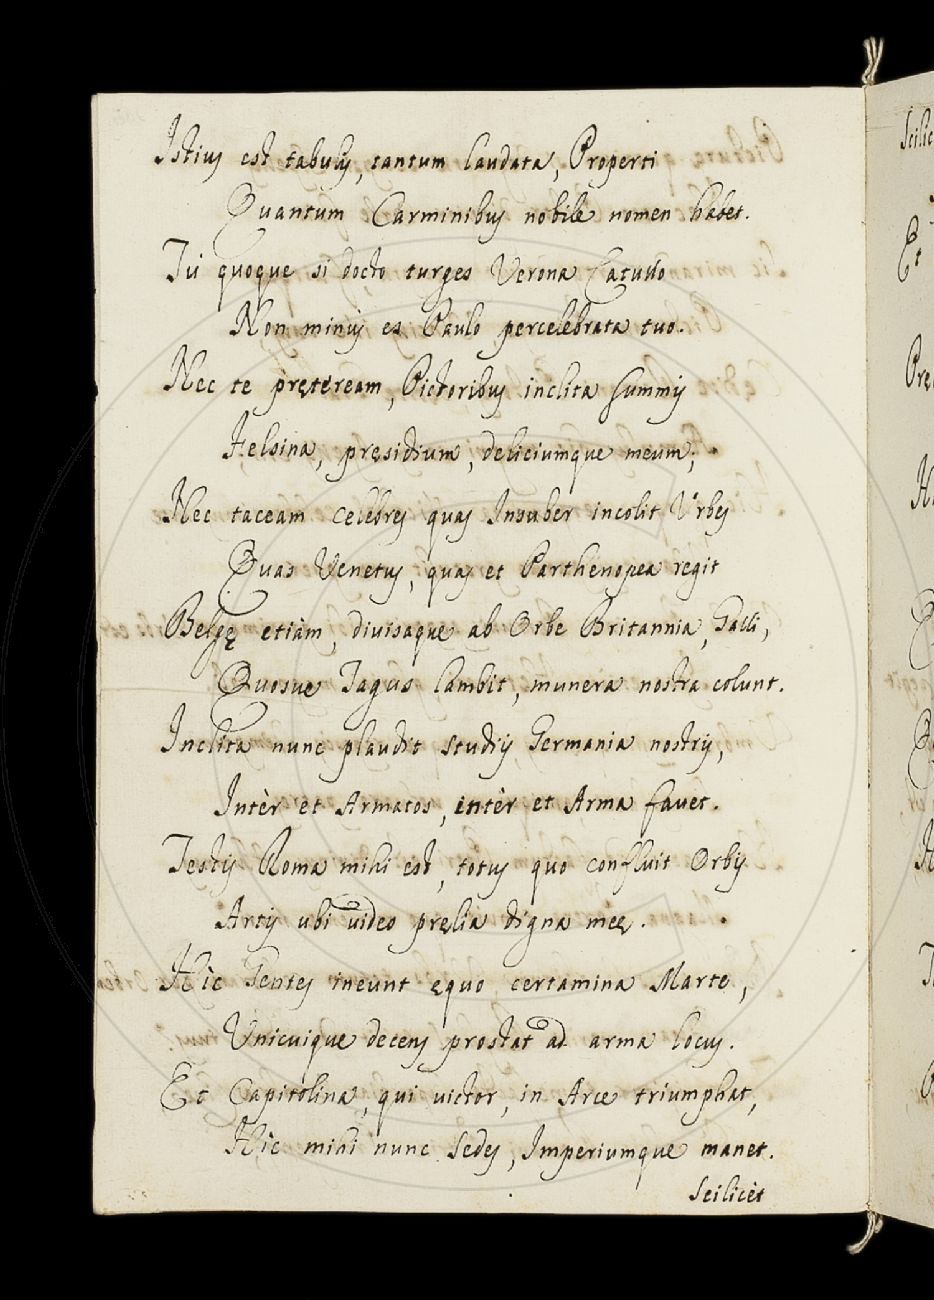 Istius est tabulis, tantum laudata, Properti
Quantum Carminibus nobile nomen habet.
Tù quoque si docto turges Verona Catullo
Non minus es Paulo percelebrata tuo.
Nec te pręteream, Pictoribus inclita summis
Felsina, pręsidium, deliciumque meum;
Nec taceam celebres quas Insuber incolit Vrbes
Quas Venetus, quas et Parthenopea regit
Belgę etiàm, diuisaque ab Orbe Britannia, Galli,
Quosue Tagus lambit, munera nostra colunt.
Inclita nunc plaudit studijs Germania nostris,
Intèr et Armatos, intèr et Arma fauet.
Testis Roma mihi est, totus quo confluit Orbis
Artis ubi uideo pręlia digna meę.
Hìc Gentes ineunt ęquo certamina Marte,
Vnicuique decens prostat ad arma locus.
Et Capitolina, qui uictor, in Arce triumphat,
Hìc mihi nunc Sedes, Imperiumque manet.
Scilicèt
Scilic
Et
Prę